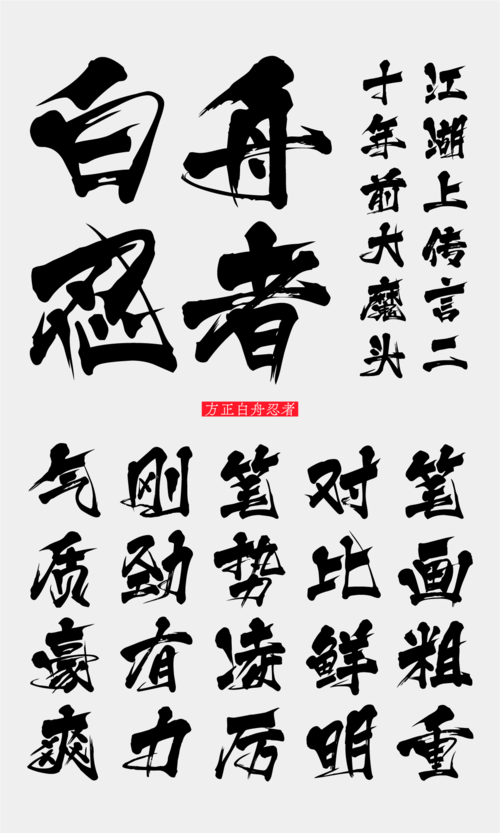 白舟
忍者
江湖上传言二
十年前大魔头
方正白舟忍者
笔画粗重
对比鲜明
笔势凌厉
刚劲有力
气质豪爽